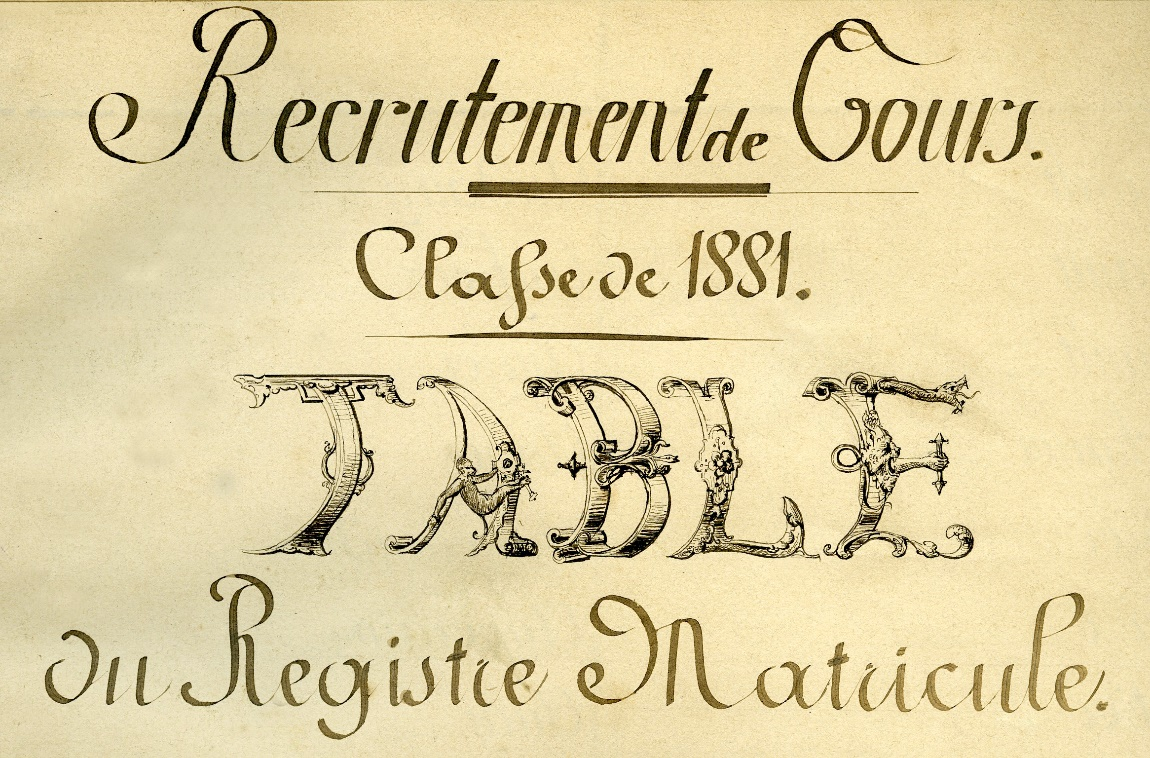 Recrutement de Tours.
Classe de 1881.
TABLE
du Registre Matricule.